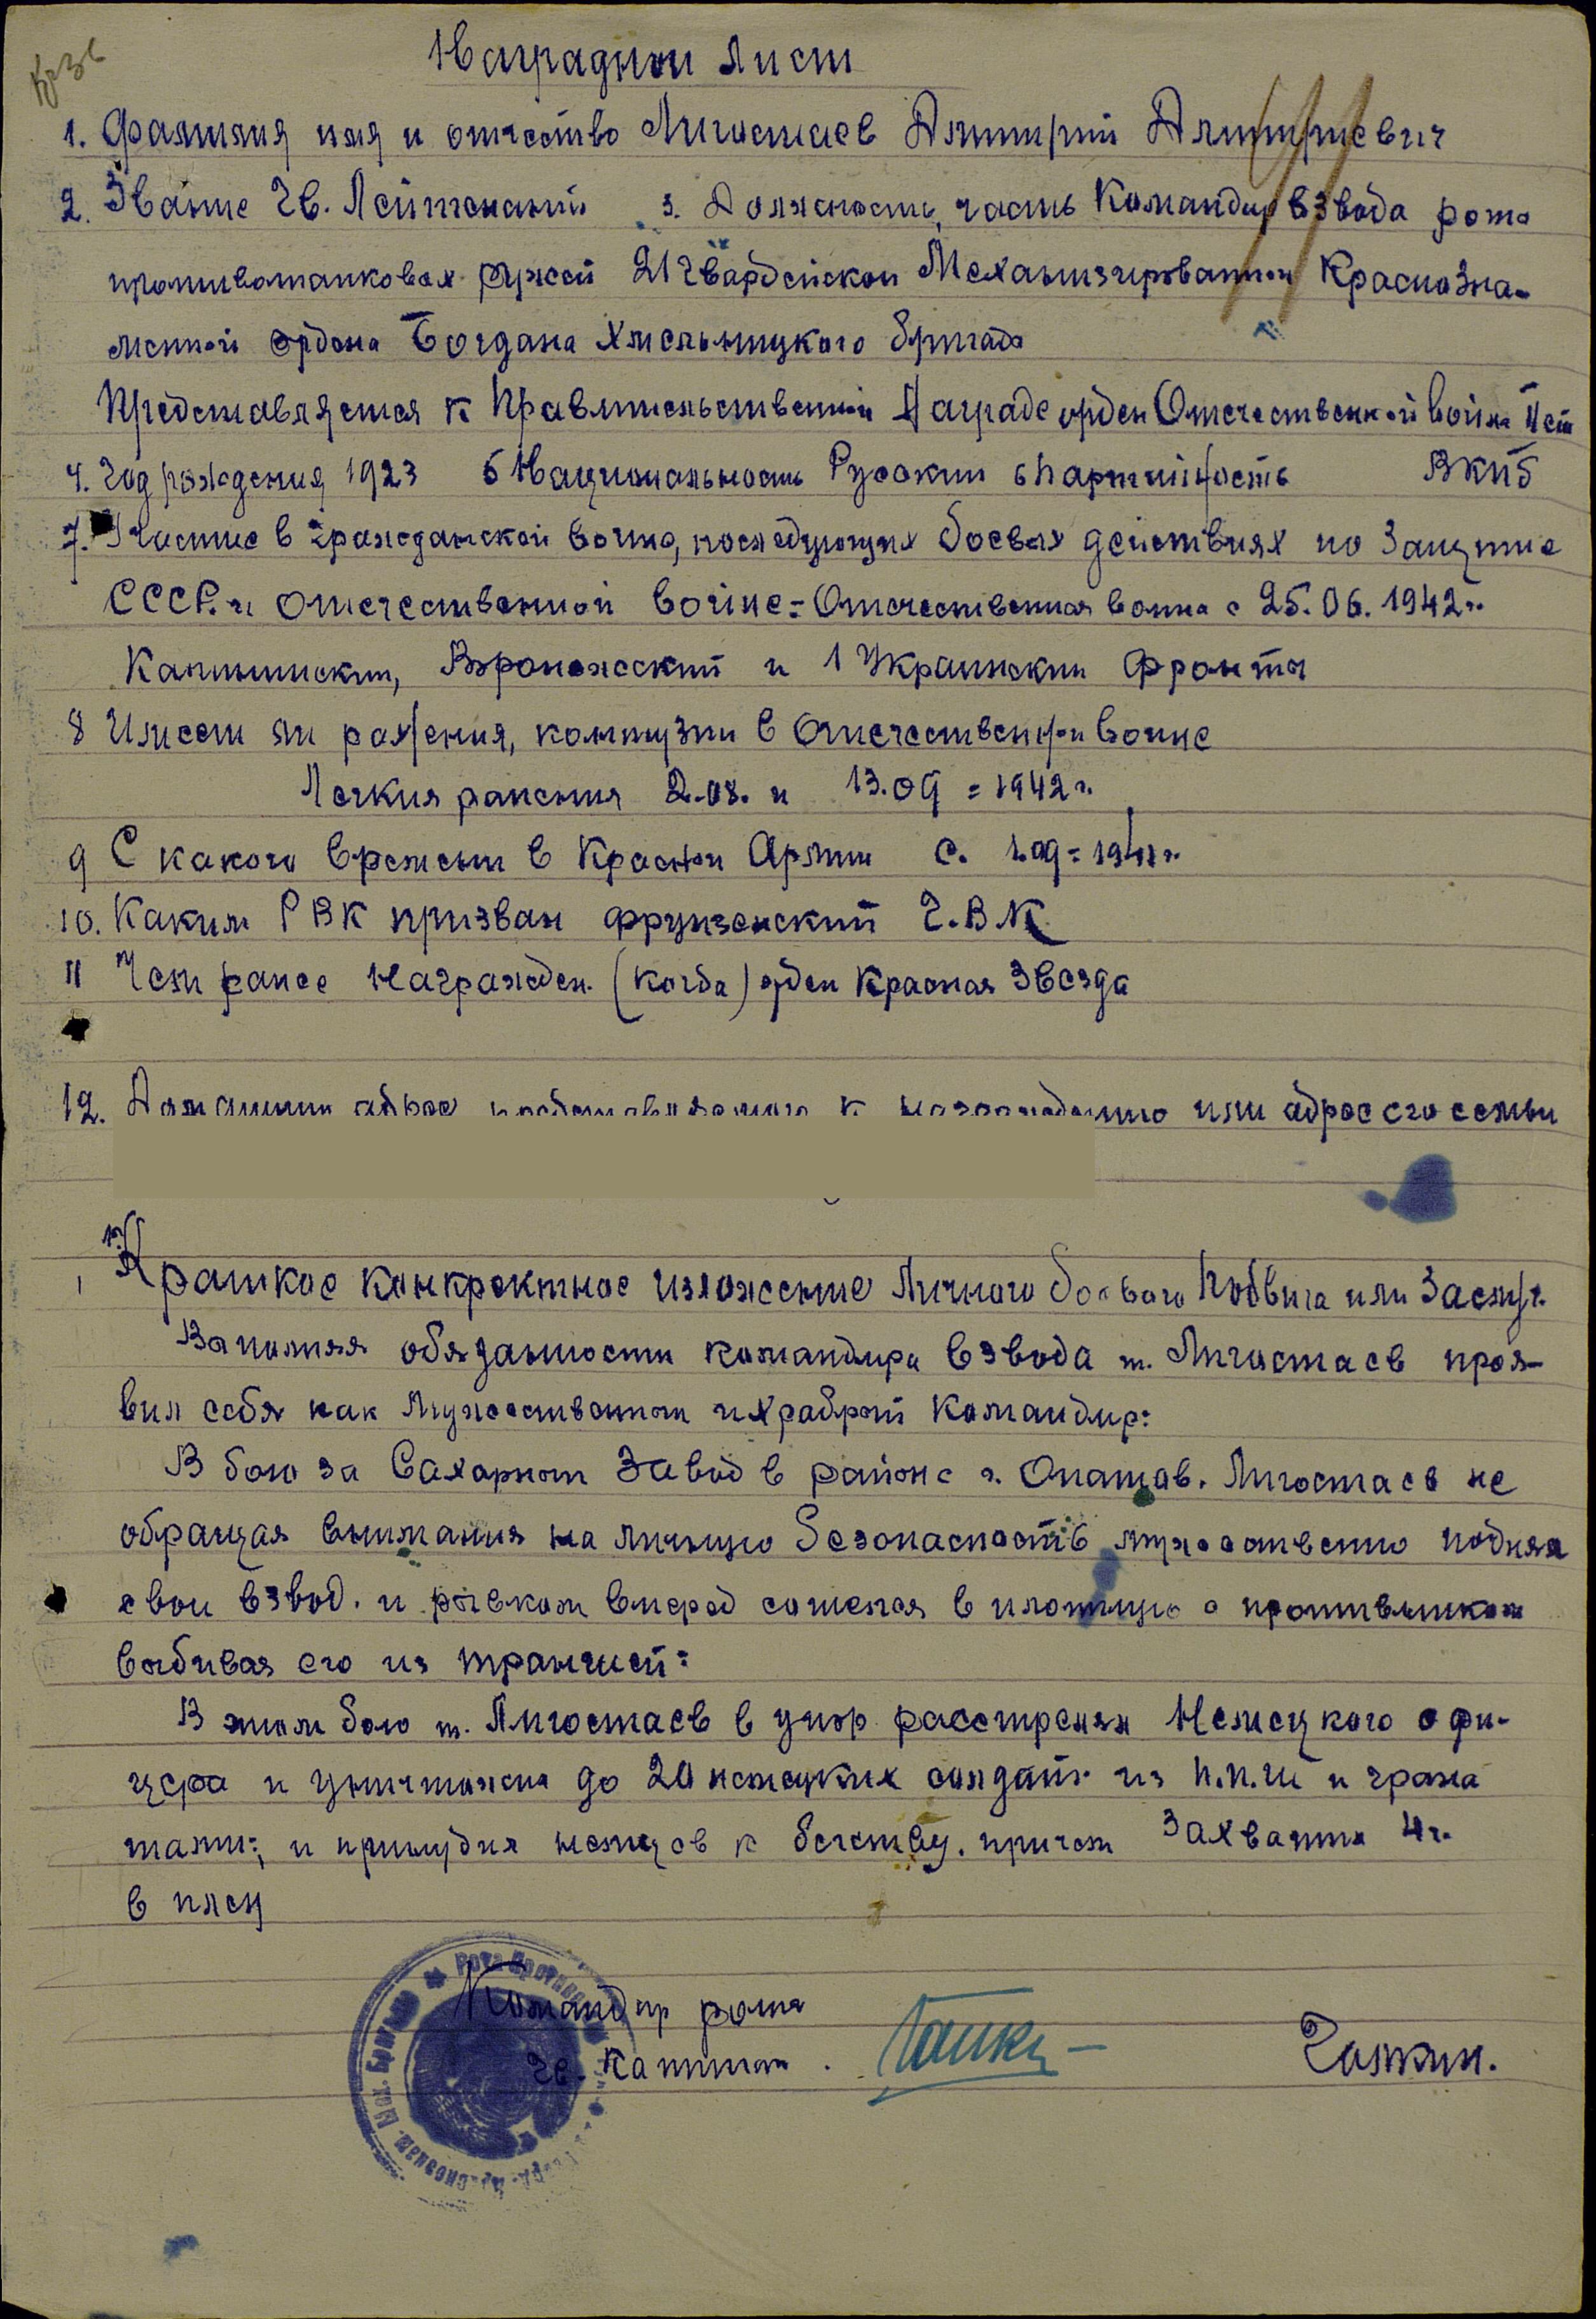 Кр Зв
Наградной лист
1. Фамилия имя и отчество Лигостаев Дмитрий Дмитриевич
2. Звание Гв. Лейтенант 3. Должность, часть Командир взвода рота
противотанковых ружей 21 Гвардейской Механизированной Краснозна-
менной ордена Богдана Хмельницкого бригада
Представляется к Правительственной Награде орден Отечественной войны II ст
4. Год рождения 1923 5 Национальность Русский 6 Партийность ВКПб
7. Участие в гражданской войне, последующих боевых действиях по Защите
СССР. и отечественной войне = Отечественная война с 25.06.1942г.
Калининский, Воронежский и 1 Украинский фронты
8 Имеет ли ранения, контузии в Отечественной войне
Легкия ранения 2.08. и 13.09 = 1942 г.
9 С какого времени в Красной Армии с. 1.09 = 1941 г.
10. Каким РВК призван Фрунзенский Г.В.К.
11 Чем ранее награжден. (когда) орден Красная Звезда
12. Домашний адрес представляемого к награждению или адрес его семьи
13. Краткое конкректное изложение личного боевого Подвига или Заслуг.
Выполняя обязанности командира взвода т. Лигостаев проя-
вил себя как мужественный и храбрый командир:
В бою за Сахарный Завод в районе г. Опатов. Лигостаев не
обращая внимания на личную безопасность мужественно поднял
свои взвод. и рывком вперед сошелся в плотную с противником
выбивая его из траншей:
В этом бою т. Лигостаев в упор расстрелял Немецкого офи-
цера и уничтожил до 20 немецких солдат из П.П.Ш и грана
тами:, и принудил немцев к бегству. причем Захватил 4 г.
в плен
Командир роты
Гв. Капитан
Галкин.